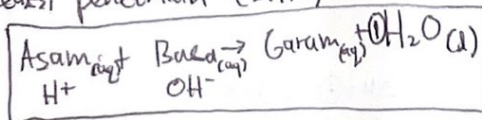 Asam(aq) + Basa(aq) → Garam(aq) + ① H₂O(l)
H⁺ OH⁻